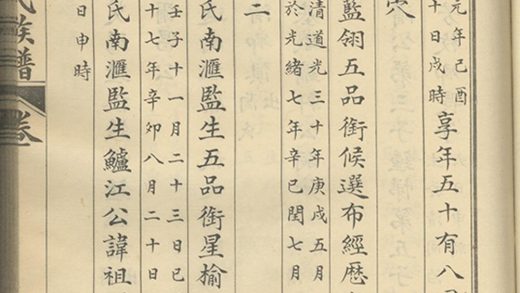 元年己酉
十日戌時享年五十有八
藍翎五品銜候選布經歷
清道光三十年庚戌五月
於光緒七年辛巳閏七月
二
氏南滙監生五品銜星榆
壬子十一月二十三日巳
十七年辛卯八月二十日
氏南滙監生鱸江公諱祖
日申時
氏族譜
卷